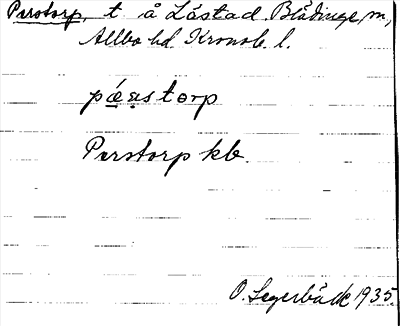 Perstorp, t å Låstad. Blädinge, m,
Allbo hd. Kronob. l.
pǽ̣ạstorp
Perstorp kb.
O. Segerbäck 1935.